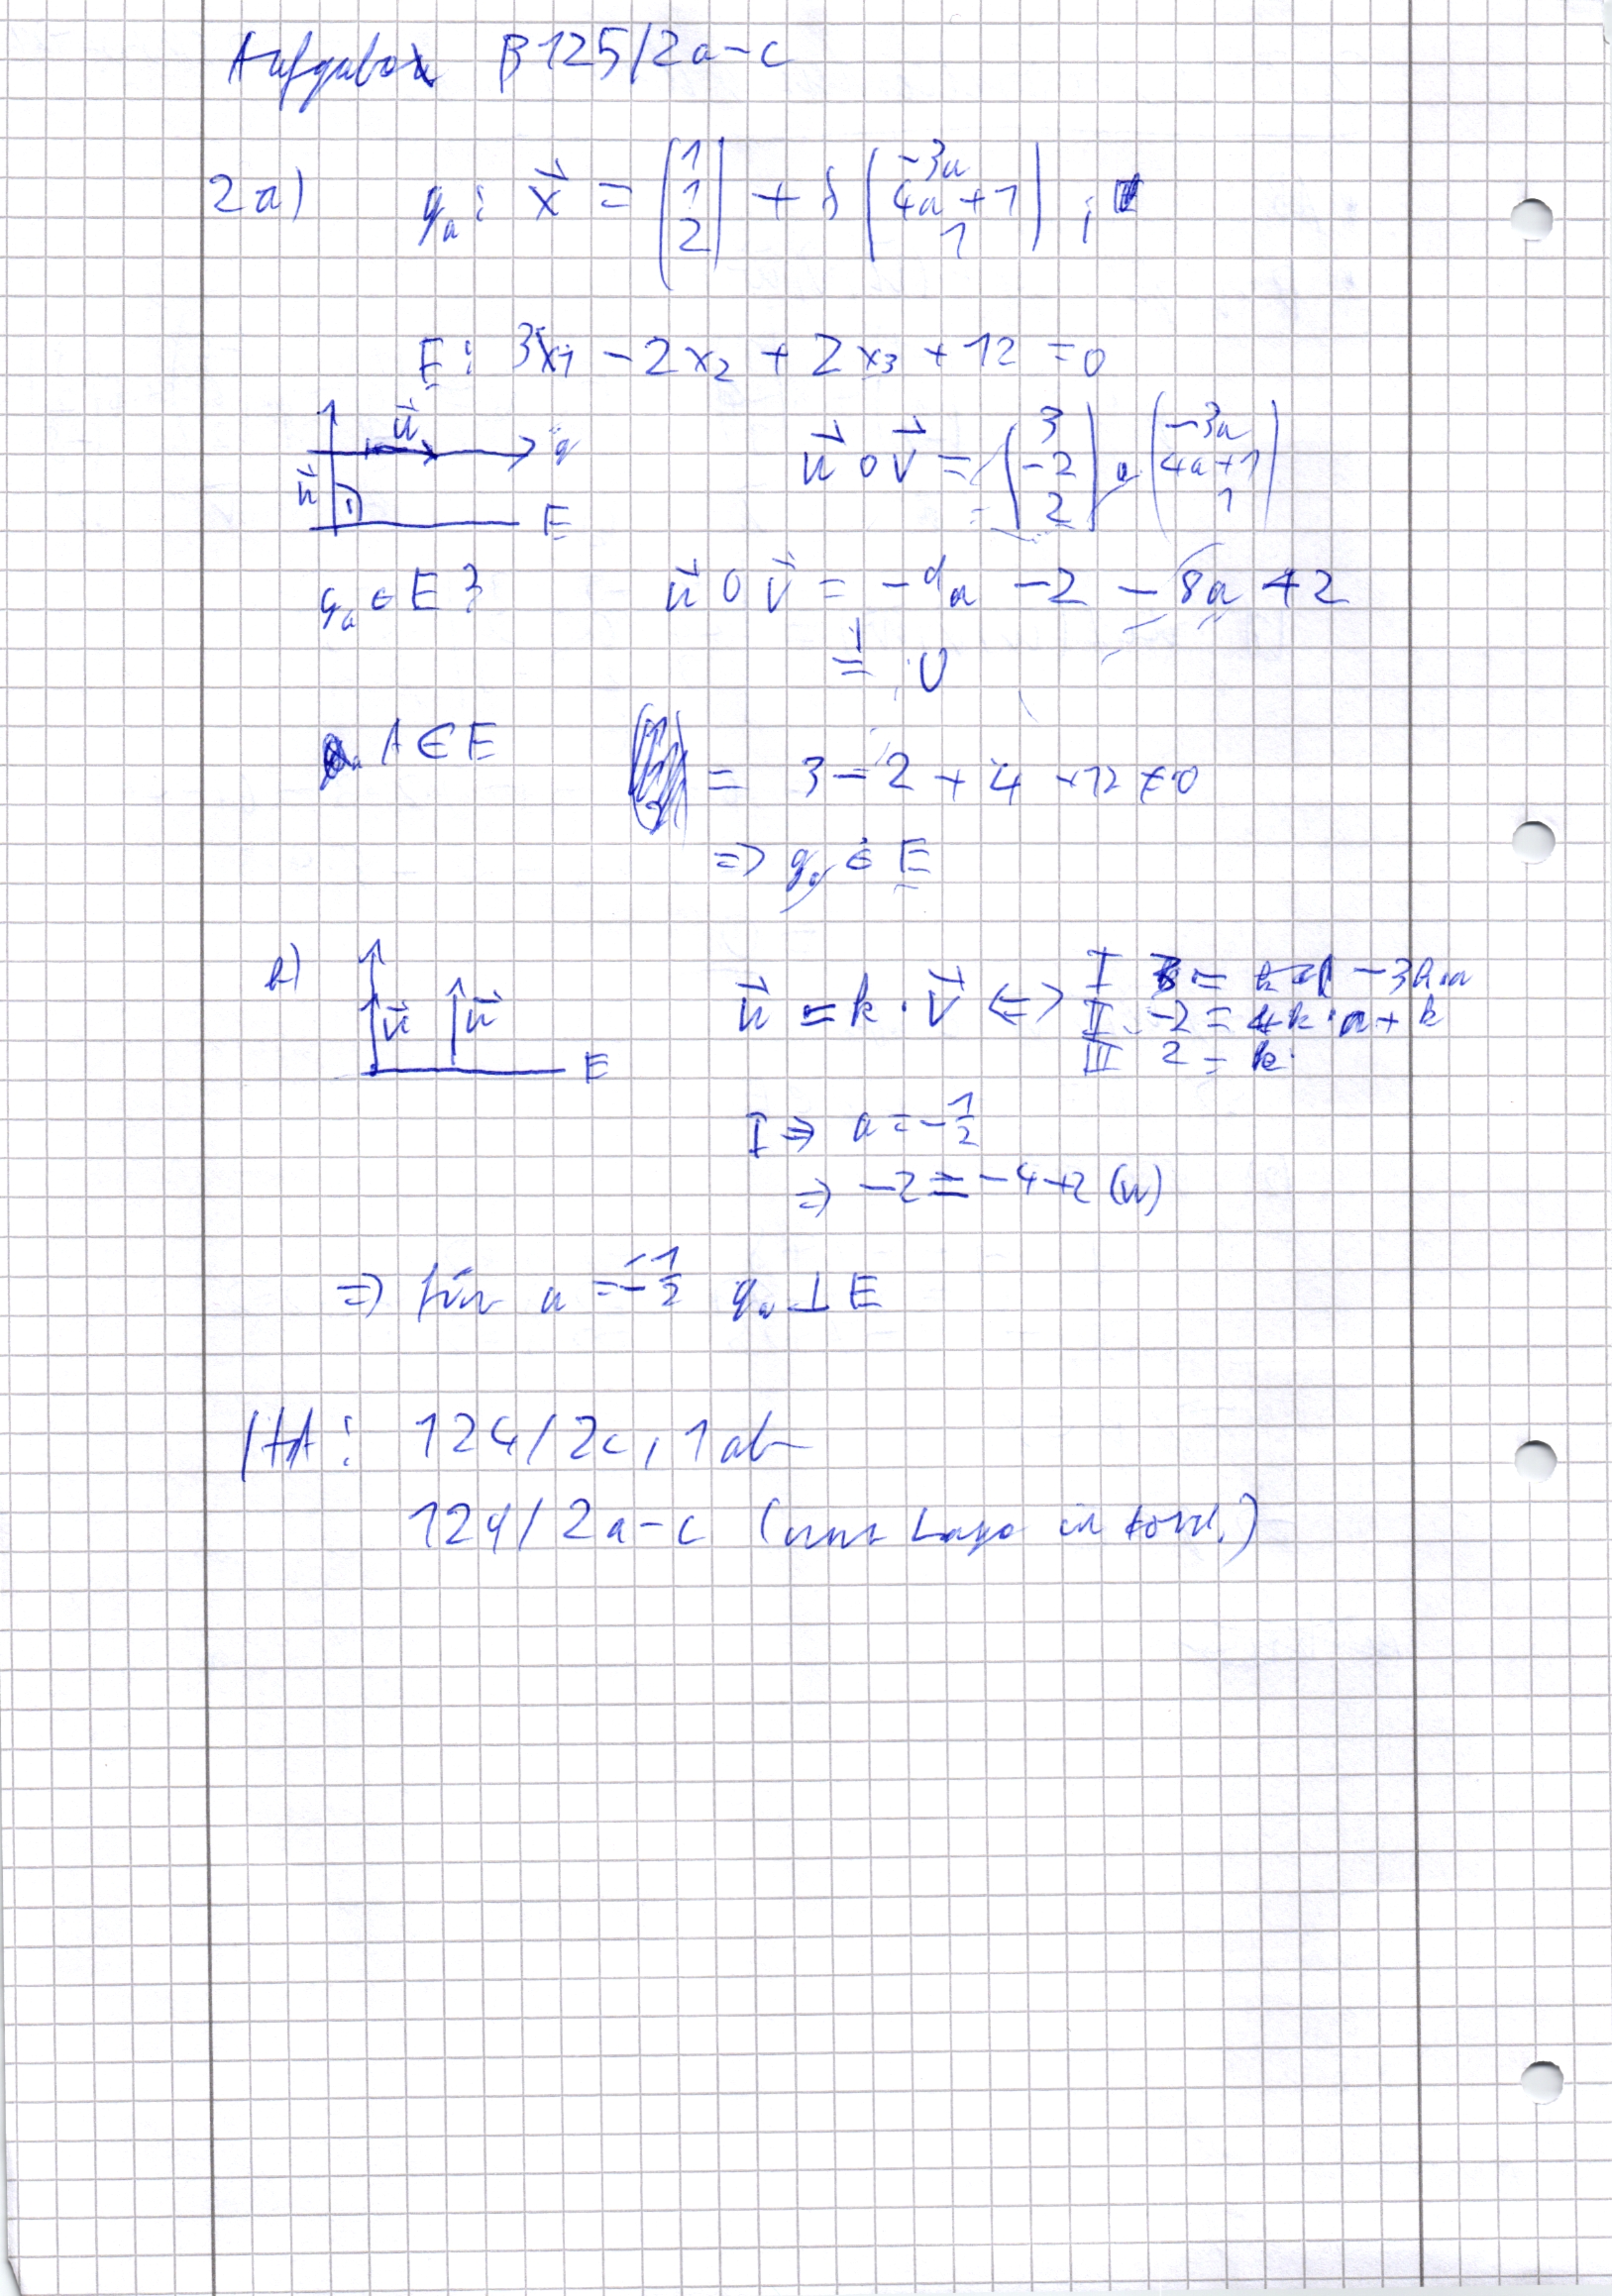 Aufgabe B 125/2a-c
2a) g_a: x⃗ = (1 1 2) + s (-3a 4a+1 1) ;
E: 3x1 - 2x2 + 2x3 + 12 = 0
u⃗ g
n⃗ E
n⃗ ∘ v⃗ = (3 -2 2) ∘ (-3a 4a+1 1)
g_a ∈ E? n⃗ ∘ v⃗ = -9a - 2 - 8a + 2
= 0
A ∈ E = 3 - 2 + 4 + 12 ≠ 0
=> g_a ∉ E
b) v⃗ n⃗ E
n⃗ = k · v⃗ <=> I 3 = -3k·a
II -2 = 4k·a + k
III 2 = k
I => a = -1/2
=> -2 = -4+2 (w)
=> für a = -1/2 g_a ⊥ E
HA: 124/2c, 1ab
124/2a-c (nur Lage in )